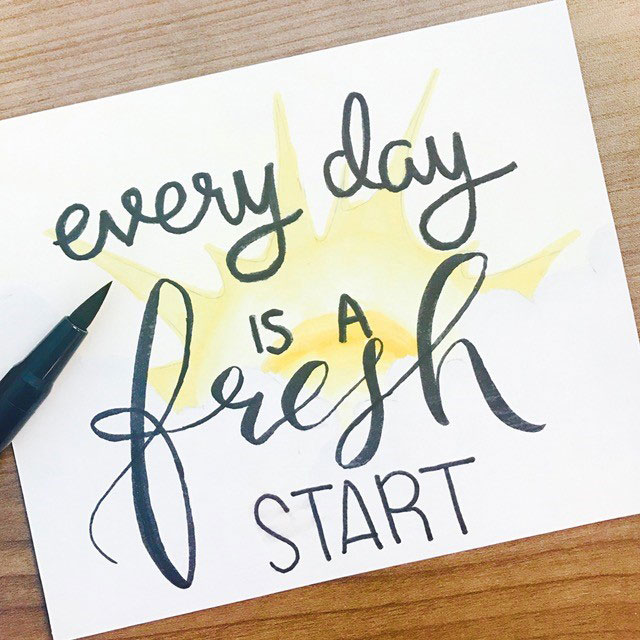 every day
IS A
fresh
START